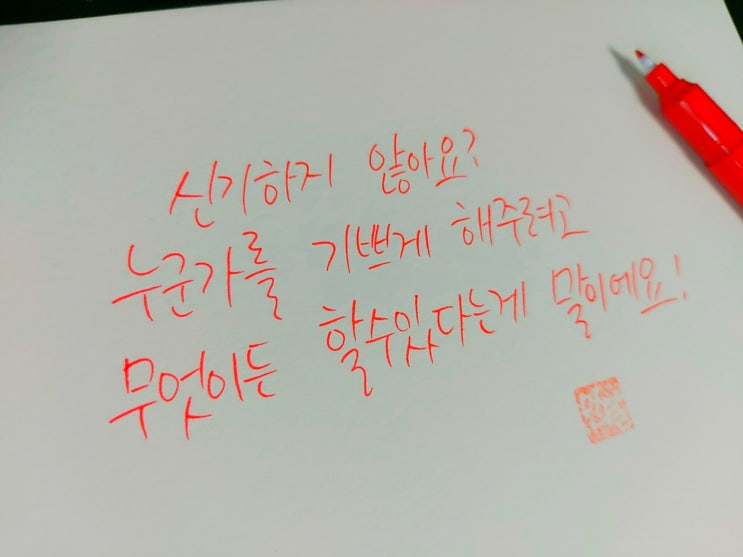 신기하지 않아요?
누군가를 기쁘게 해주려고
무엇이든 할수있다는게 말이에요!